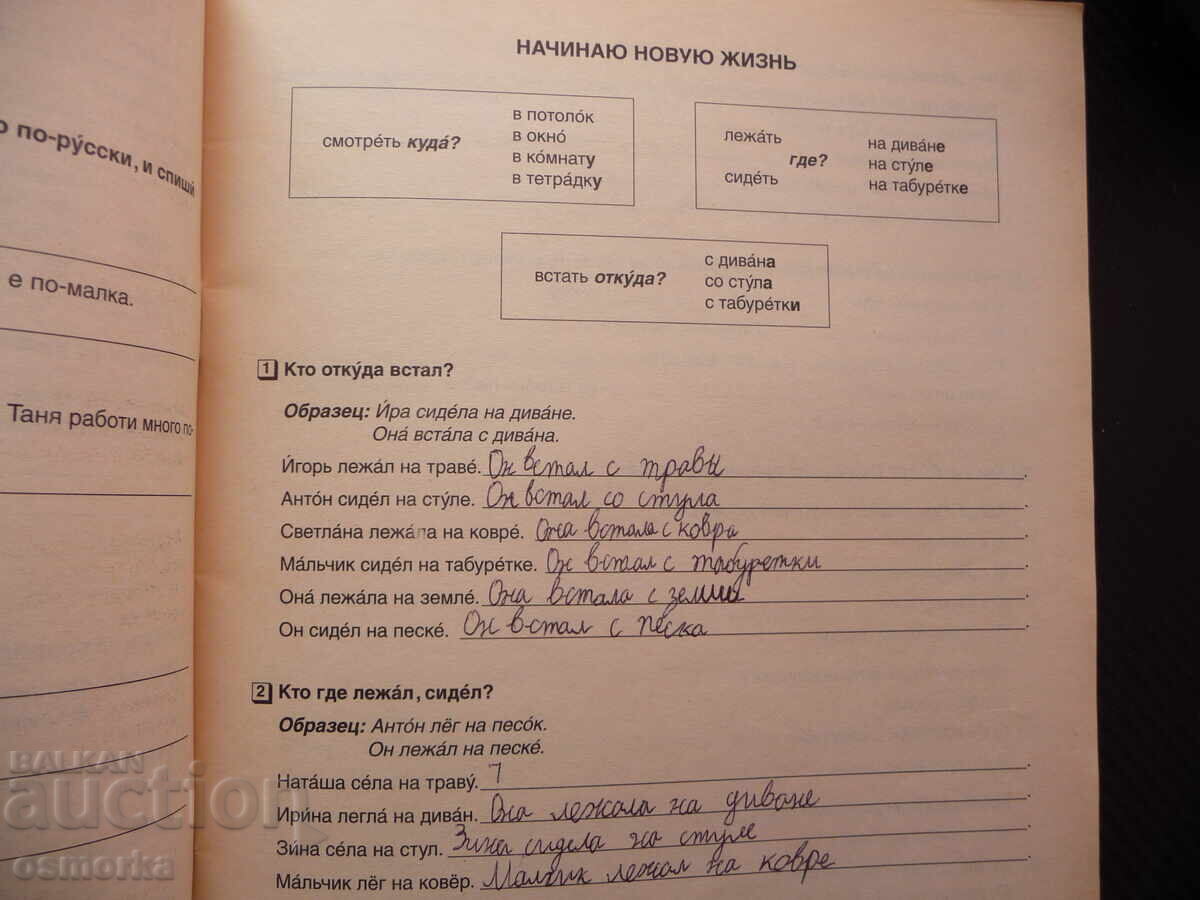 о по-ру́сски, и спиши́
е по-малка.
Таня работи много по-
НАЧИНАЮ НОВУЮ ЖИЗНЬ
смотре́ть куда́?
в потоло́к
в окно́
в ко́мнату
в тетра́дку
лежа́ть
где?
сиде́ть
на дива́не
на сту́ле
на табуре́тке
встать отку́да?
с дива́на
со сту́ла
с табуре́тки
1 Кто отку́да встал?
Образец: И́ра сиде́ла на дива́не.
Она́ вста́ла с дива́на.
И́горь лежа́л на траве́. Он встал с травы.
Анто́н сиде́л на сту́ле. Он встал со стула.
Светла́на лежа́ла на ковре́. Она встала с ковра.
Ма́льчик сиде́л на табуре́тке. Он встал с табуретки.
Она́ лежа́ла на земле́. Она встала с земли.
Он сиде́л на песке́. Он встал с песка.
2 Кто где лежа́л, сиде́л?
Образец: Анто́н лёг на песо́к.
Он лежа́л на песке́.
Ната́ша се́ла на траву́.
Ири́на легла́ на дива́н. Она лежала на диване.
Зи́на се́ла на стул. Зина сидела на стуле
Ма́льчик лёг на ковёр. Малчик лежал на ковре
BALKAN
auction
osmorka